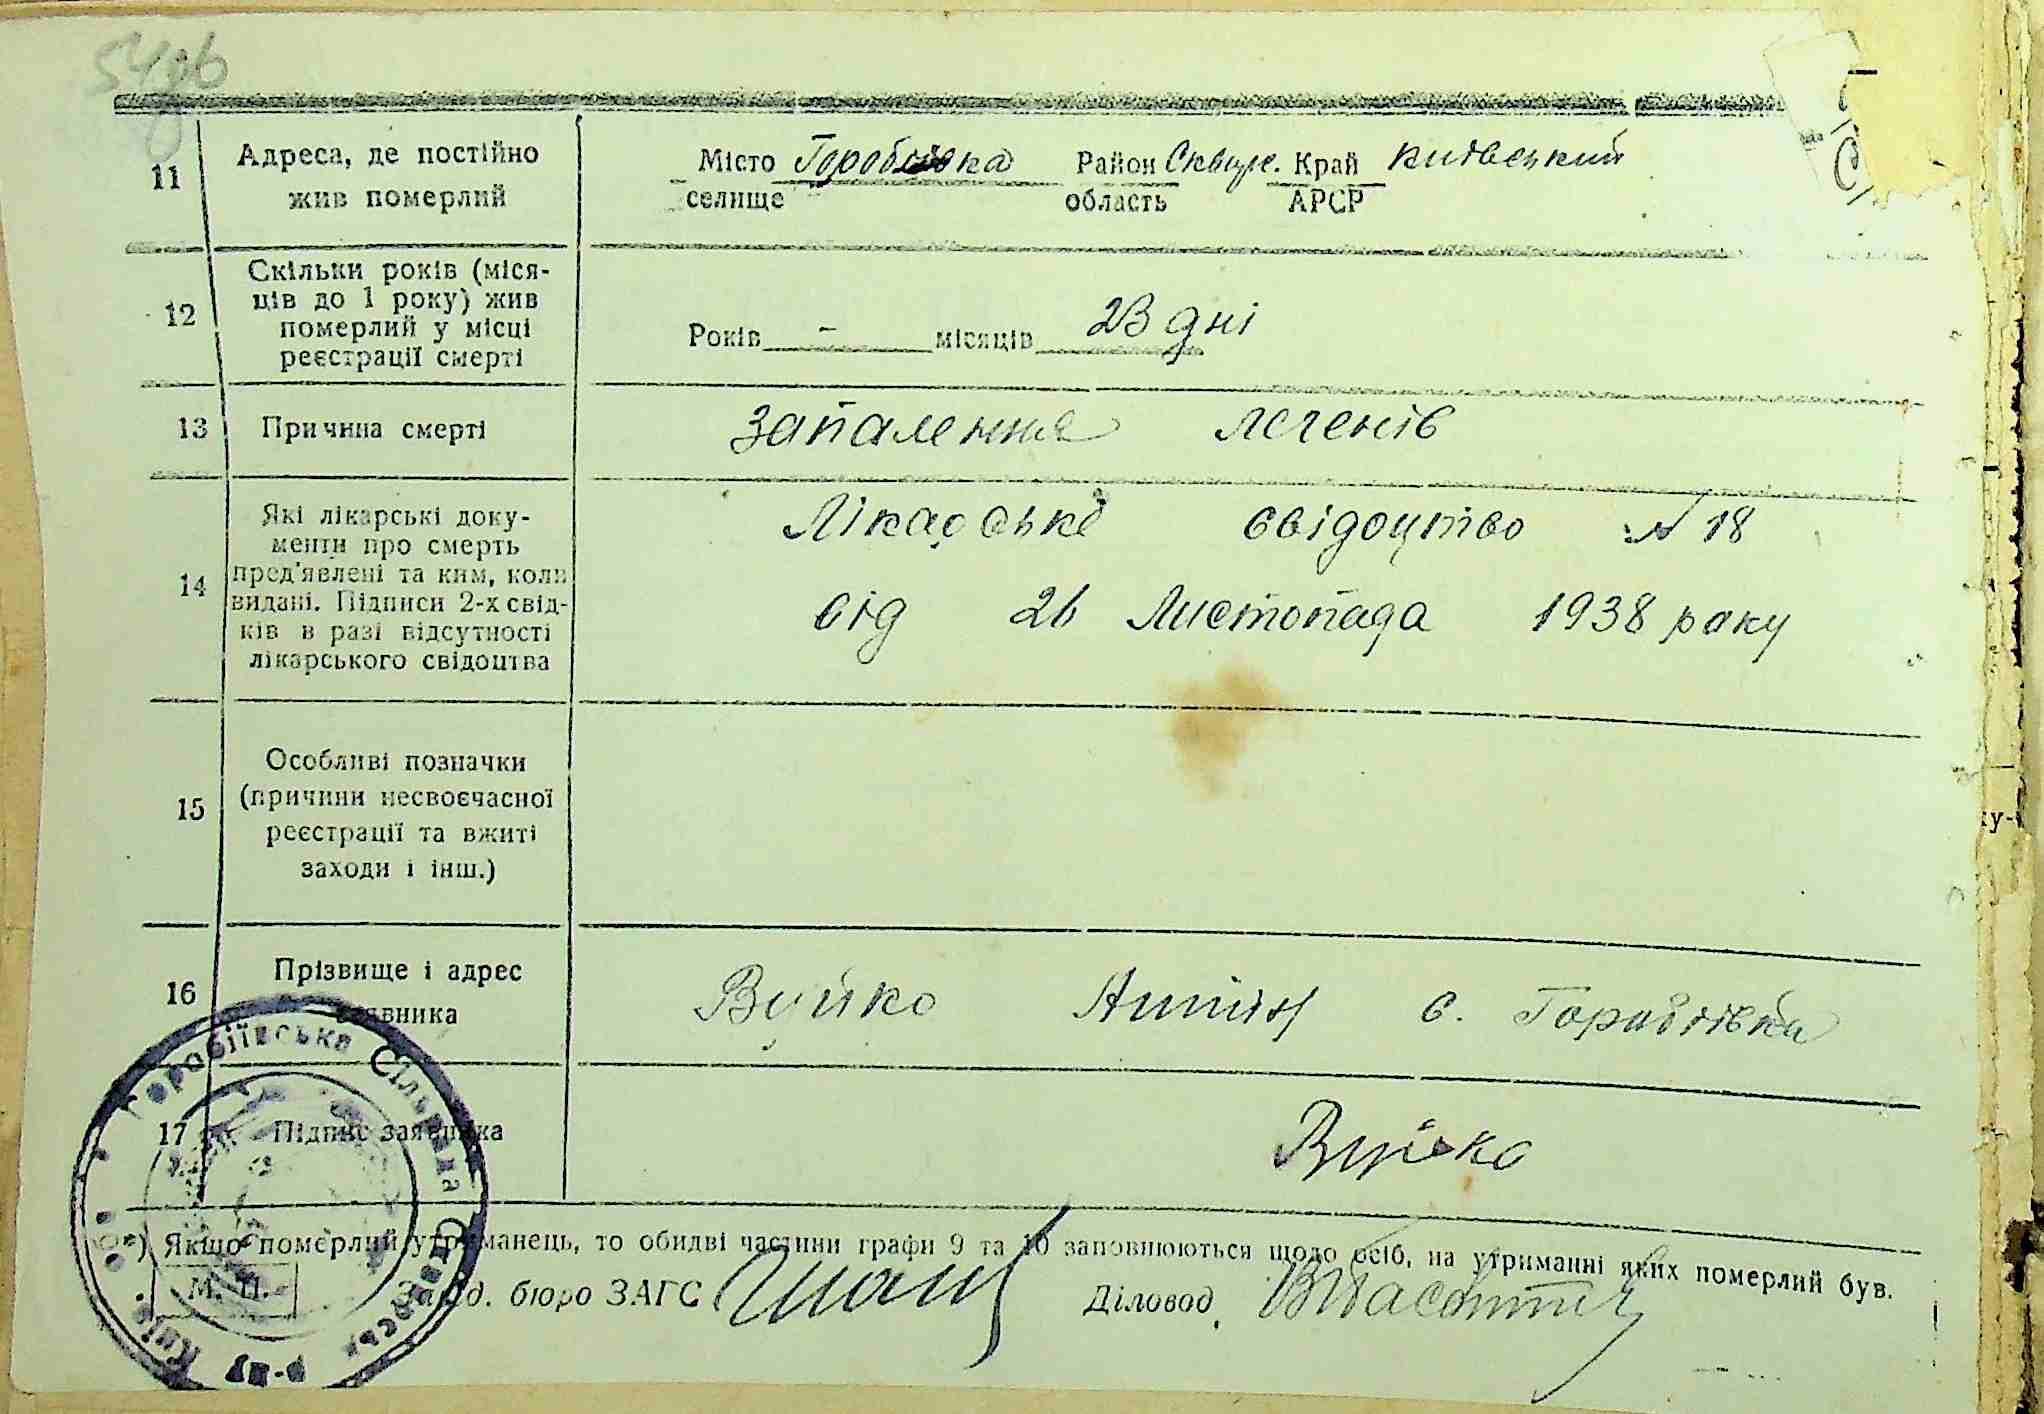 54зв
11 Адреса, де постійно жив померлий
Місто селище Горобіївка Район область Сквир. Край АРСР київський
12 Скільки років (міся-
ців до 1 року) жив
померлий у місці
реєстрації смерті
Років - місяців 23 дні
13 Причина смерті
запалення легенів
14 Які лікарські доку-
менти про смерть
пред'явлені та ким, коли
видані. Підписи 2-х свід-
ків в разі відсутності
лікарського свідоцтва
Лікарське свідоцтво № 18
від 26 Листопада 1938 року
15 Особливі позначки
(причини несвоєчасної
реєстрації та вжиті
заходи і інш.)
16 Прізвище і адрес
заявника
Вуйко Антін с. Горобіївка
17 Підпис заявника
Вуйко
*) Якщо померлий утриманець, то обидві частини графи 9 та 10 заповнюються щодо осіб, на утриманні яких померлий був.
М. П.
Завід. бюро ЗАГС
Діловод
Горобіївська Сільська Сквирськ р-ну Київ. обл